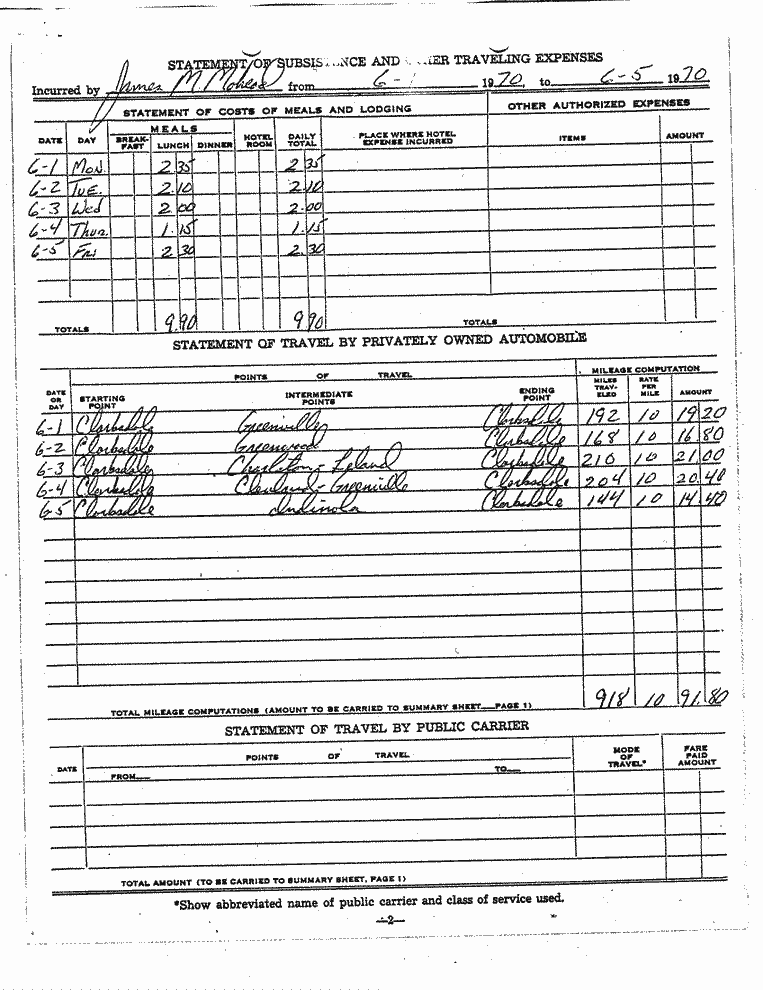 STATEMENT OF SUBSIS NCE AND ER TRAVELING EXPENSES
Incurred by James M. from 6-1 1970, to 6-5 1970
STATEMENT OF COSTS OF MEALS AND LODGING OTHER AUTHORIZED EXPENSES
DATE DAY MEALS HOTEL ROOM DAILY TOTAL PLACE WHERE HOTEL EXPENSE INCURRED ITEMS AMOUNT
BREAK-FAST LUNCH DINNER
6-1 Mon. 2 35 2 35
6-2 Tue. 2.10 2.10
6-3 Wed 2.00 2.00
6-4 Thur. 1.15 1.15
6-5 Fri 2 30 2.30
TOTALS 9.90 9 90 TOTALS
STATEMENT OF TRAVEL BY PRIVATELY OWNED AUTOMOBILE
DATE OR DAY POINTS OF TRAVEL MILEAGE COMPUTATION
STARTING POINT INTERMEDIATE POINTS ENDING POINT MILES TRAV-ELED RATE PER MILE AMOUNT
6-1 Clarksdale Greenville Clarksdale 192 10 19 20
6-2 Clarksdale Greenwood Clarksdale 168 10 16 80
6-3 Clarksdale Charleston - Leland Clarksdale 210 10 21.00
6-4 Clarksdale Cleveland - Greenville Clarksdale 204 10 20.40
6-5 Clarksdale Indianola Clarksdale 144 10 14.40
TOTAL MILEAGE COMPUTATIONS (AMOUNT TO BE CARRIED TO SUMMARY SHEET PAGE 1) 918 10 91.80
STATEMENT OF TRAVEL BY PUBLIC CARRIER
DATE POINTS OF TRAVEL MODE OF TRAVEL* FARE PAID AMOUNT
FROM TO
TOTAL AMOUNT (TO BE CARRIED TO SUMMARY SHEET, PAGE 1)
*Show abbreviated name of public carrier and class of service used.
—2—